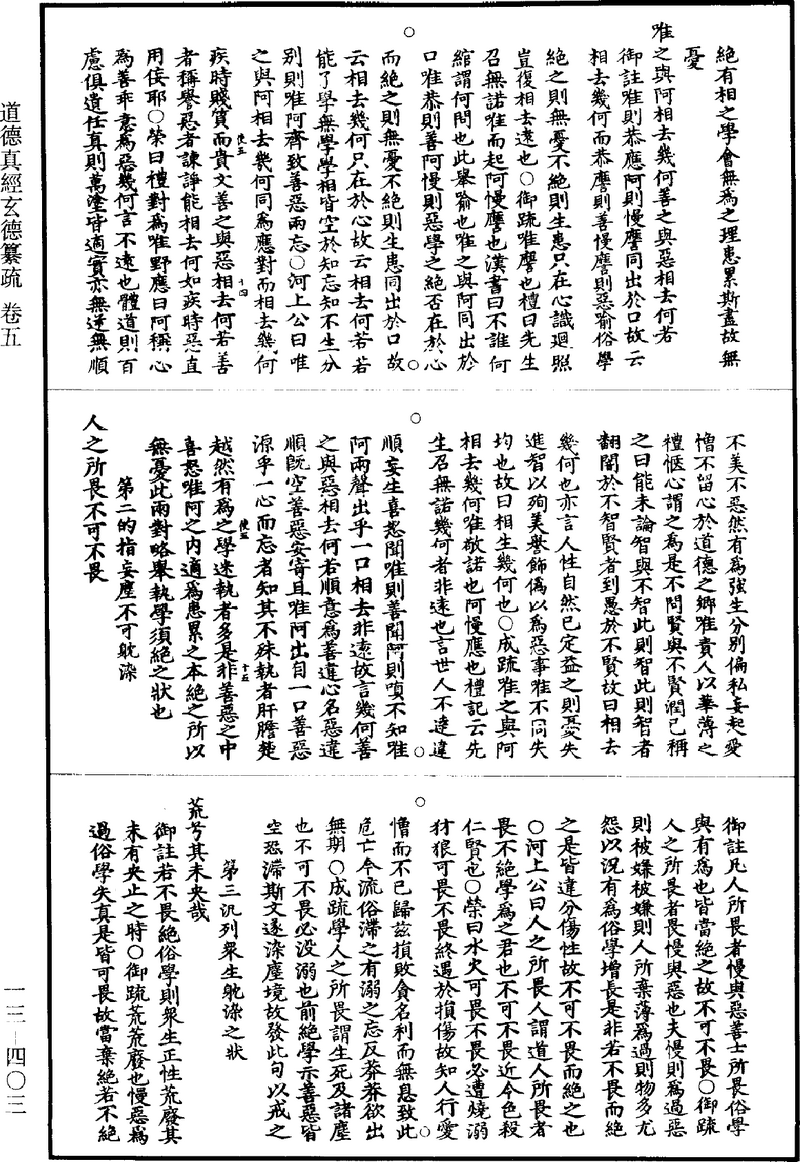 道德真經玄德纂疏 卷五
一三—四〇三
絕有相之學會無為之理患累斯盡故無
憂
唯之與阿相去幾何善之與惡相去何若
御註唯則恭應阿則慢譍同出於口故云
相去幾何而恭譍則善慢譍則惡喻俗學
絕之則無憂不絕則生患只在心識迴照
豈復相去遠也○御疏唯譍也禮曰先生
召無諾唯而起阿慢譍也漢書曰不誰何
綰謂何問也此舉喻也唯之與阿同出於
口唯恭則善阿慢則惡學之絕否在於心
而絕之則無憂不絕則生患同出於口故
云相去幾何只在於心故云相去何若若
能了學無學學相皆空於知忘知不生分
別則唯阿齊致善惡兩忘○河上公曰唯
之與阿相去幾何同為應對而相去幾何
疾時賤質而貴文善之與惡相去何若善
者稱譽惡者諫諍能相去何如疾時惡直
用佞耶○榮曰禮對為唯野應曰阿稱心
為善乖意為惡幾何言不遠也體道則百
慮俱遣任真則萬塗皆適實亦無逆無順
使五
十四
不美不惡然有為強生分別偏私妄起愛
憎不留心於道德之鄉唯責人以華薄之
禮愜心謂之為是不問賢與不賢潤己稱
之曰能未論智與不智此則智此則智者
翻闇於不智賢者到愚於不賢故曰相去
幾何也亦言人性自然已定益之則憂失
進智以殉美譽飾偽以為惡事雖不同失
均也故曰相生幾何也○成疏唯之與阿
相去幾何唯敬諾也阿慢應也禮記云先
生召無諾幾何者非遠也言世人不達違
順妄生喜怒聞唯則善聞阿則嗔不知唯
阿兩聲出乎一口相去非遠故言幾何善
之與惡相去何若順意為善違心名惡違
順既空善惡安寄且唯阿出自一口善惡
源乎一心而忘者知其不殊執者肝膽楚
越然有為之學迷執者多是非善惡之中
喜怒唯阿之內適為患累之本絕之所以
無憂此兩對略舉執學須絕之狀也
第二的指妄塵不可躭染
人之所畏不可不畏
使五
十五
御註凡人所畏者慢與惡善士所畏俗學
與有為也皆當絕之故不可不畏○御疏
人之所畏者畏慢與惡也夫慢則為過惡
則被嫌被嫌則人所棄薄為過則物多尤
怨以況有為俗學增長是非若不畏而絕
之是皆違分傷性故不可不畏而絕之也
○河上公曰人之所畏人謂道人所畏者
畏不絕學為之君也不可不畏近令色殺
仁賢也○榮曰水火可畏不畏必遭燒溺
犲狼可畏不畏終遇於損傷故知人行愛
憎而不已歸茲損敗貪名利而無息致此
危亡今流俗滯之有溺之忘反莽莽欲出
無期○成疏學人之所畏謂生死及諸塵
也不可不畏必沒溺也前絕學示善惡皆
空恐滯斯文遂染塵境故發此句以戒之
第三汎列衆生躭染之狀
荒兮其未央哉
御註若不畏絕俗學則衆生正性荒廢其
未有央止之時○御疏荒荒廢也慢惡為
過俗學失真是皆可畏故當棄絕若不絕